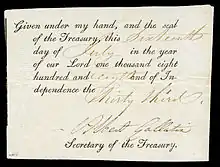 Given under my hand, and the seal
of the Treasury, this Sixteenth
day of July in the year
of our Lord one thousand eight
hundred and eight and of In-
dependence the Thirty Third.
Albert Gallatin
Secretary of the Treasury.